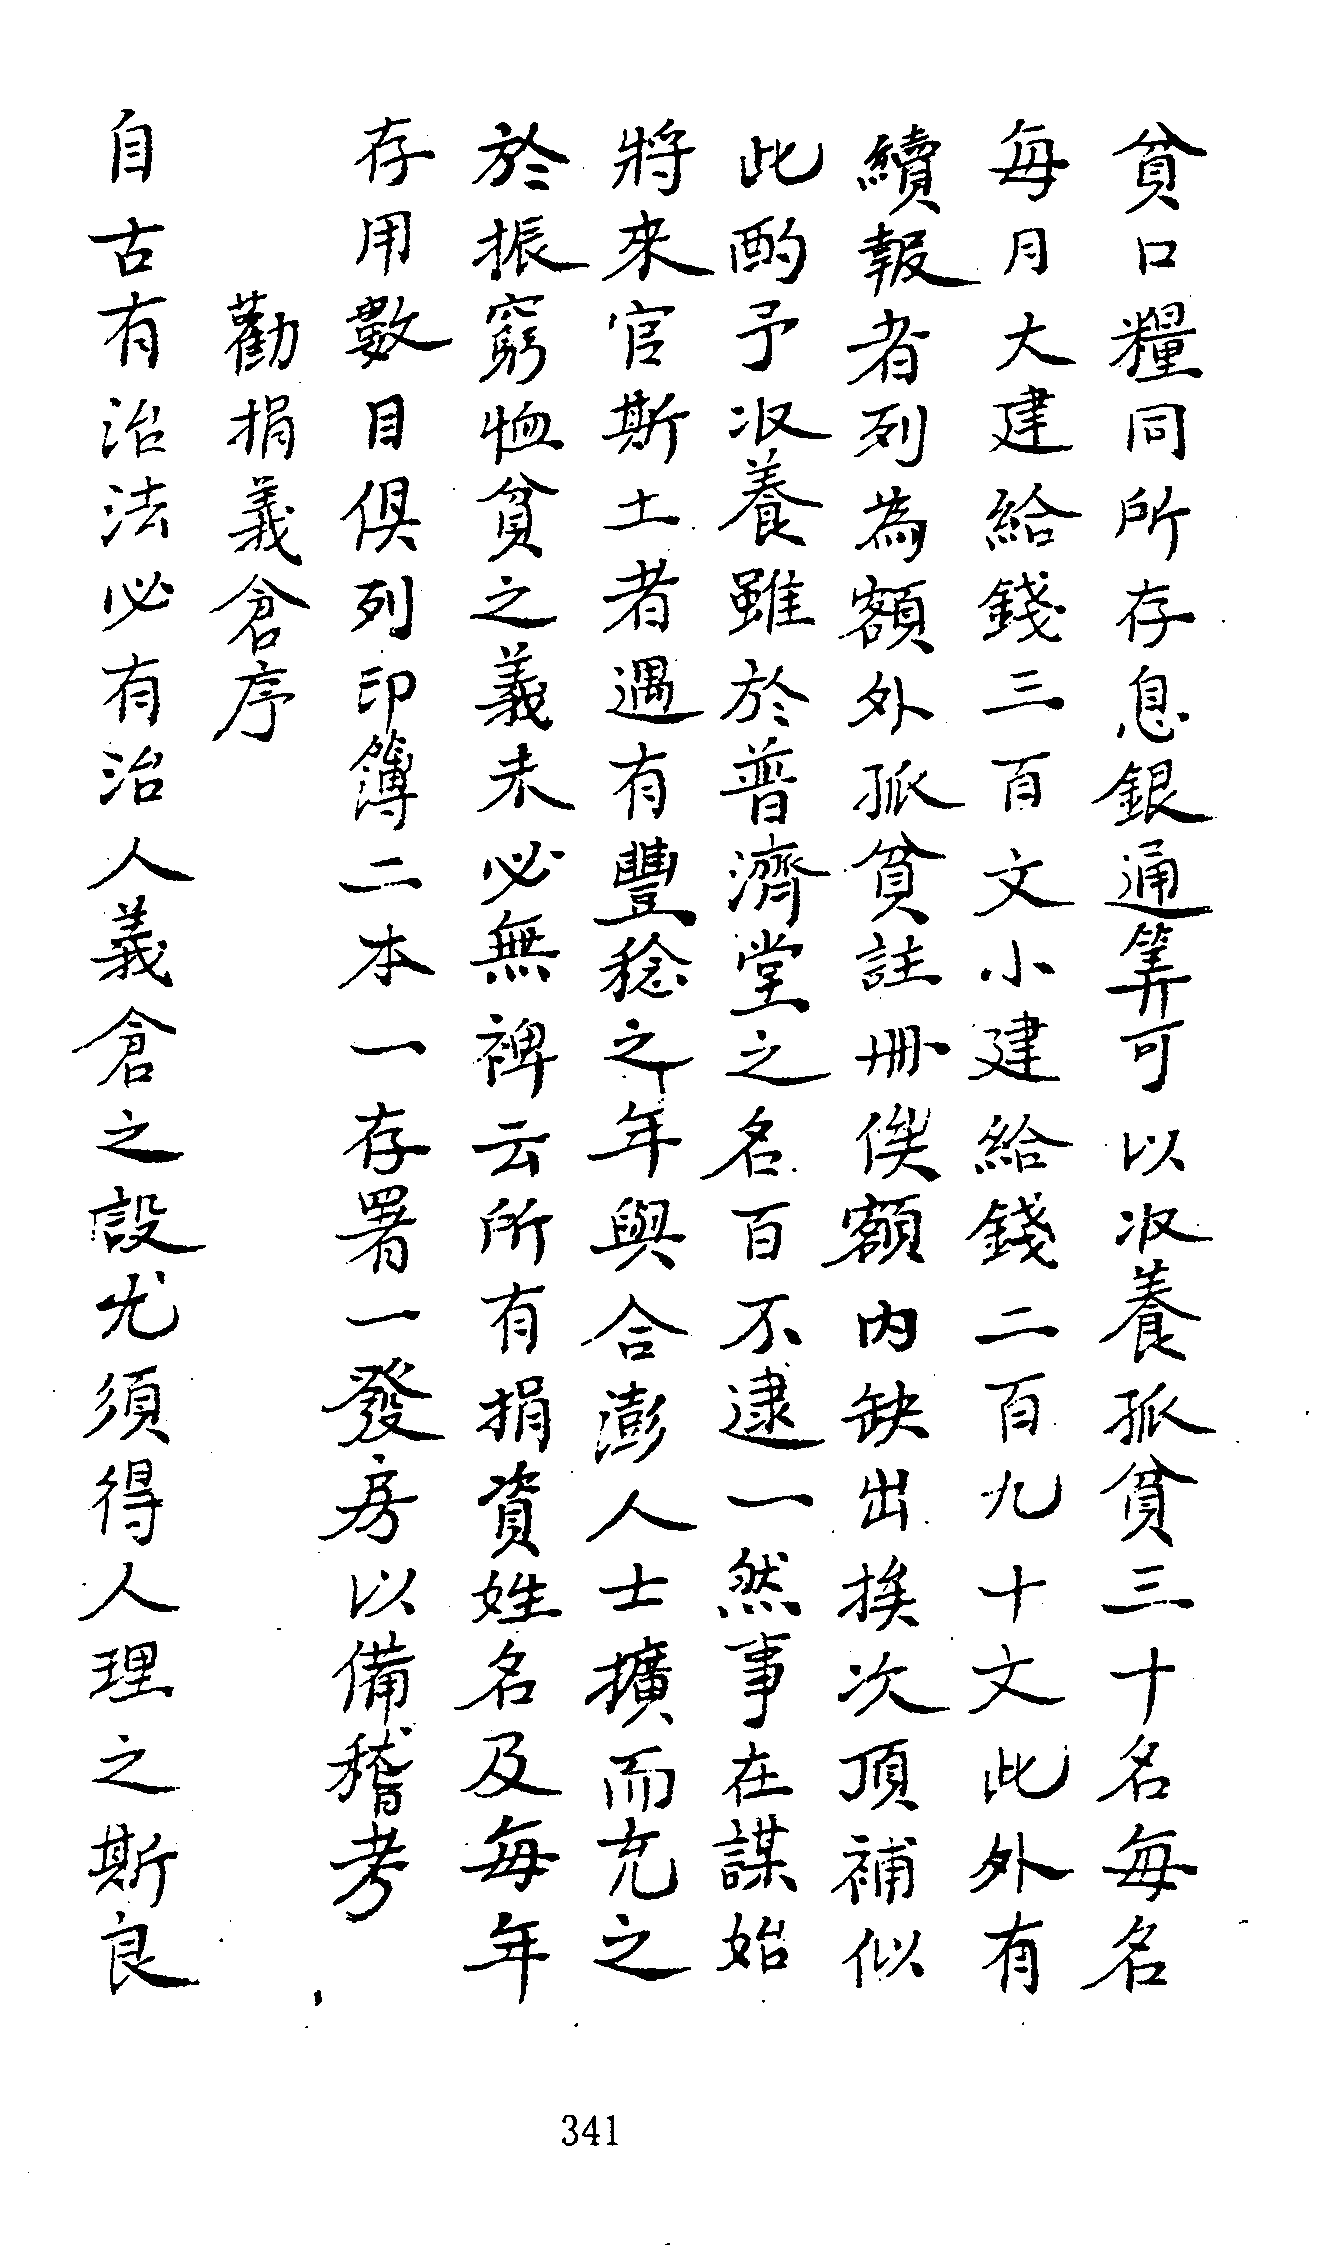 貧口糧同所存息銀通筭可以收養孤貧三十名每名
每月大建給錢三百文小建給錢二百九十文此外有
續報者列為額外孤貧註冊俟額內缺出挨次頂補似
此酌予收養雖於普濟堂之名百不逮一然事在謀始
將來官斯土者遇有豐稔之年與合澎人士擴而充之
於振窮恤貧之義未必無裨云所有捐資姓名及每年
存用數目俱列印簿二本一存署一發房以備稽考
勸捐義倉序
自古有治法必有治人義倉之設尤須得人理之斯良
341